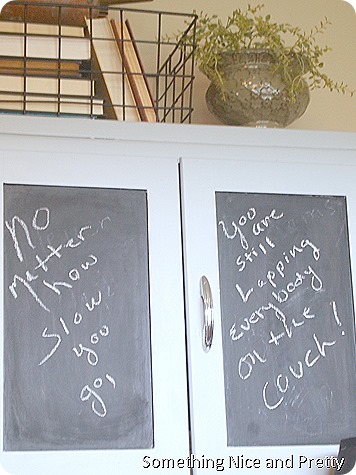 No
Matter
how
Slow
you
go,
You
are
still
Lapping
Everybody
on the
couch!
Something Nice and Pretty